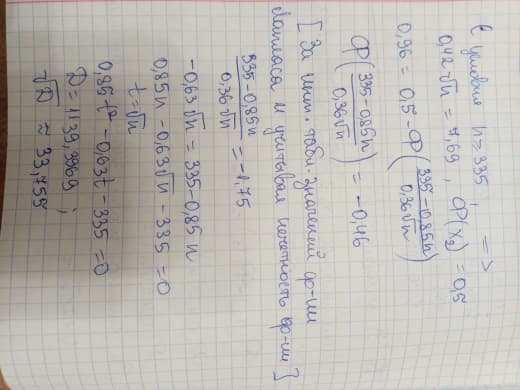 С условия n ≥ 335, =>
0,42√n = 7,69, Ф(x₂) = 0,5
0,96 = 0,5 - Ф((335-0,85n)/(0,36√n))
Ф((335-0,85n)/(0,36√n)) = -0,46
[За таб. значений ф-ии
Лапласа и учитывая нечетность ф-ии]
(335-0,85n)/(0,36√n) = -1,75
-0,63√n = 335-0,85n
0,85n - 0,63√n - 335 = 0
t = √n
0,85t² - 0,63t - 335 = 0
D = 1139,3969 ;
√D ≈ 33,755